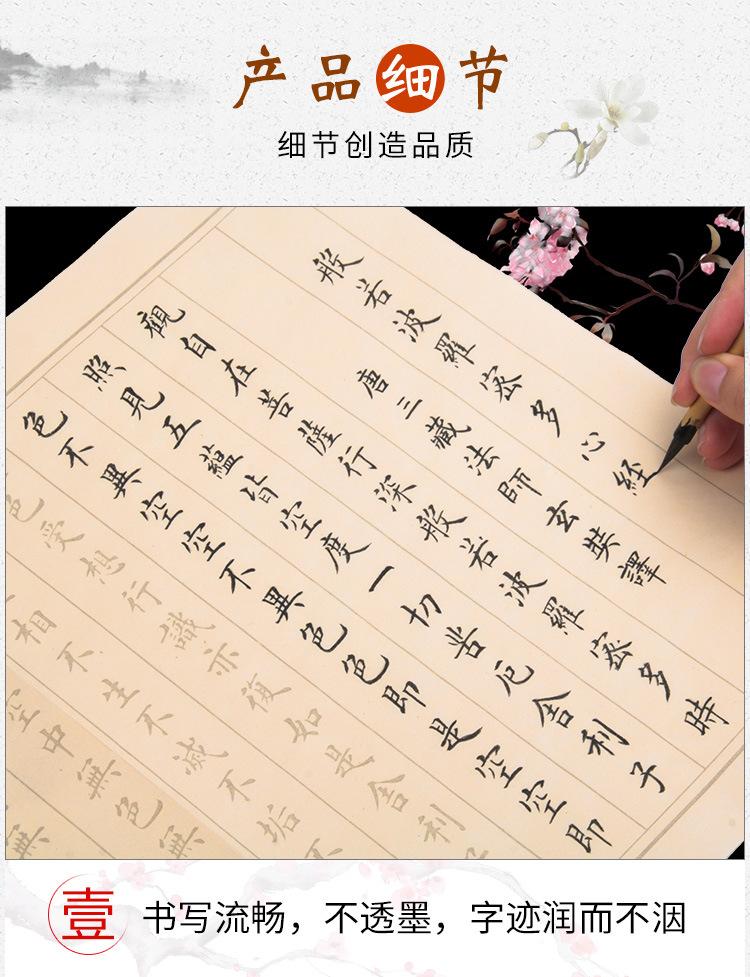 产品细节
细节创造品质
般若波羅密多心經
唐三藏法師玄奘譯
觀自在菩薩行深般若波羅密多時
照見五蘊皆空度一切苦厄舍利子
色不異空空不異色色即是空空即
色受想行識亦復如是舍利
相不生不滅不垢不
空中無色無
無
壹
书写流畅，不透墨，字迹润而不洇